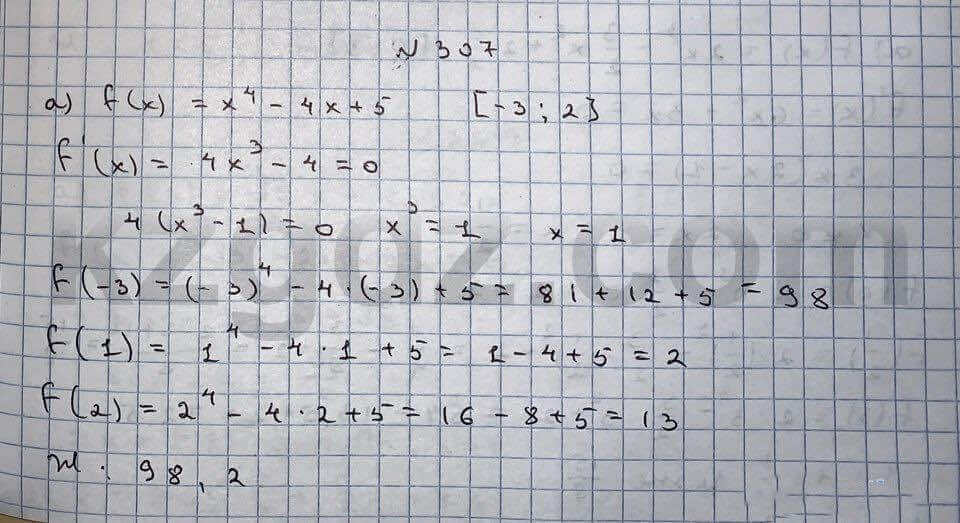 № 307
а) f(x) = x⁴ - 4x + 5 [-3; 2]
f'(x) = 4x³ - 4 = 0
4(x³ - 1) = 0 x³ = 1 x = 1
f(-3) = (-3)⁴ - 4·(-3) + 5 = 81 + 12 + 5 = 98
f(1) = 1⁴ - 4·1 + 5 = 1 - 4 + 5 = 2
f(2) = 2⁴ - 4·2 + 5 = 16 - 8 + 5 = 13
98, 2